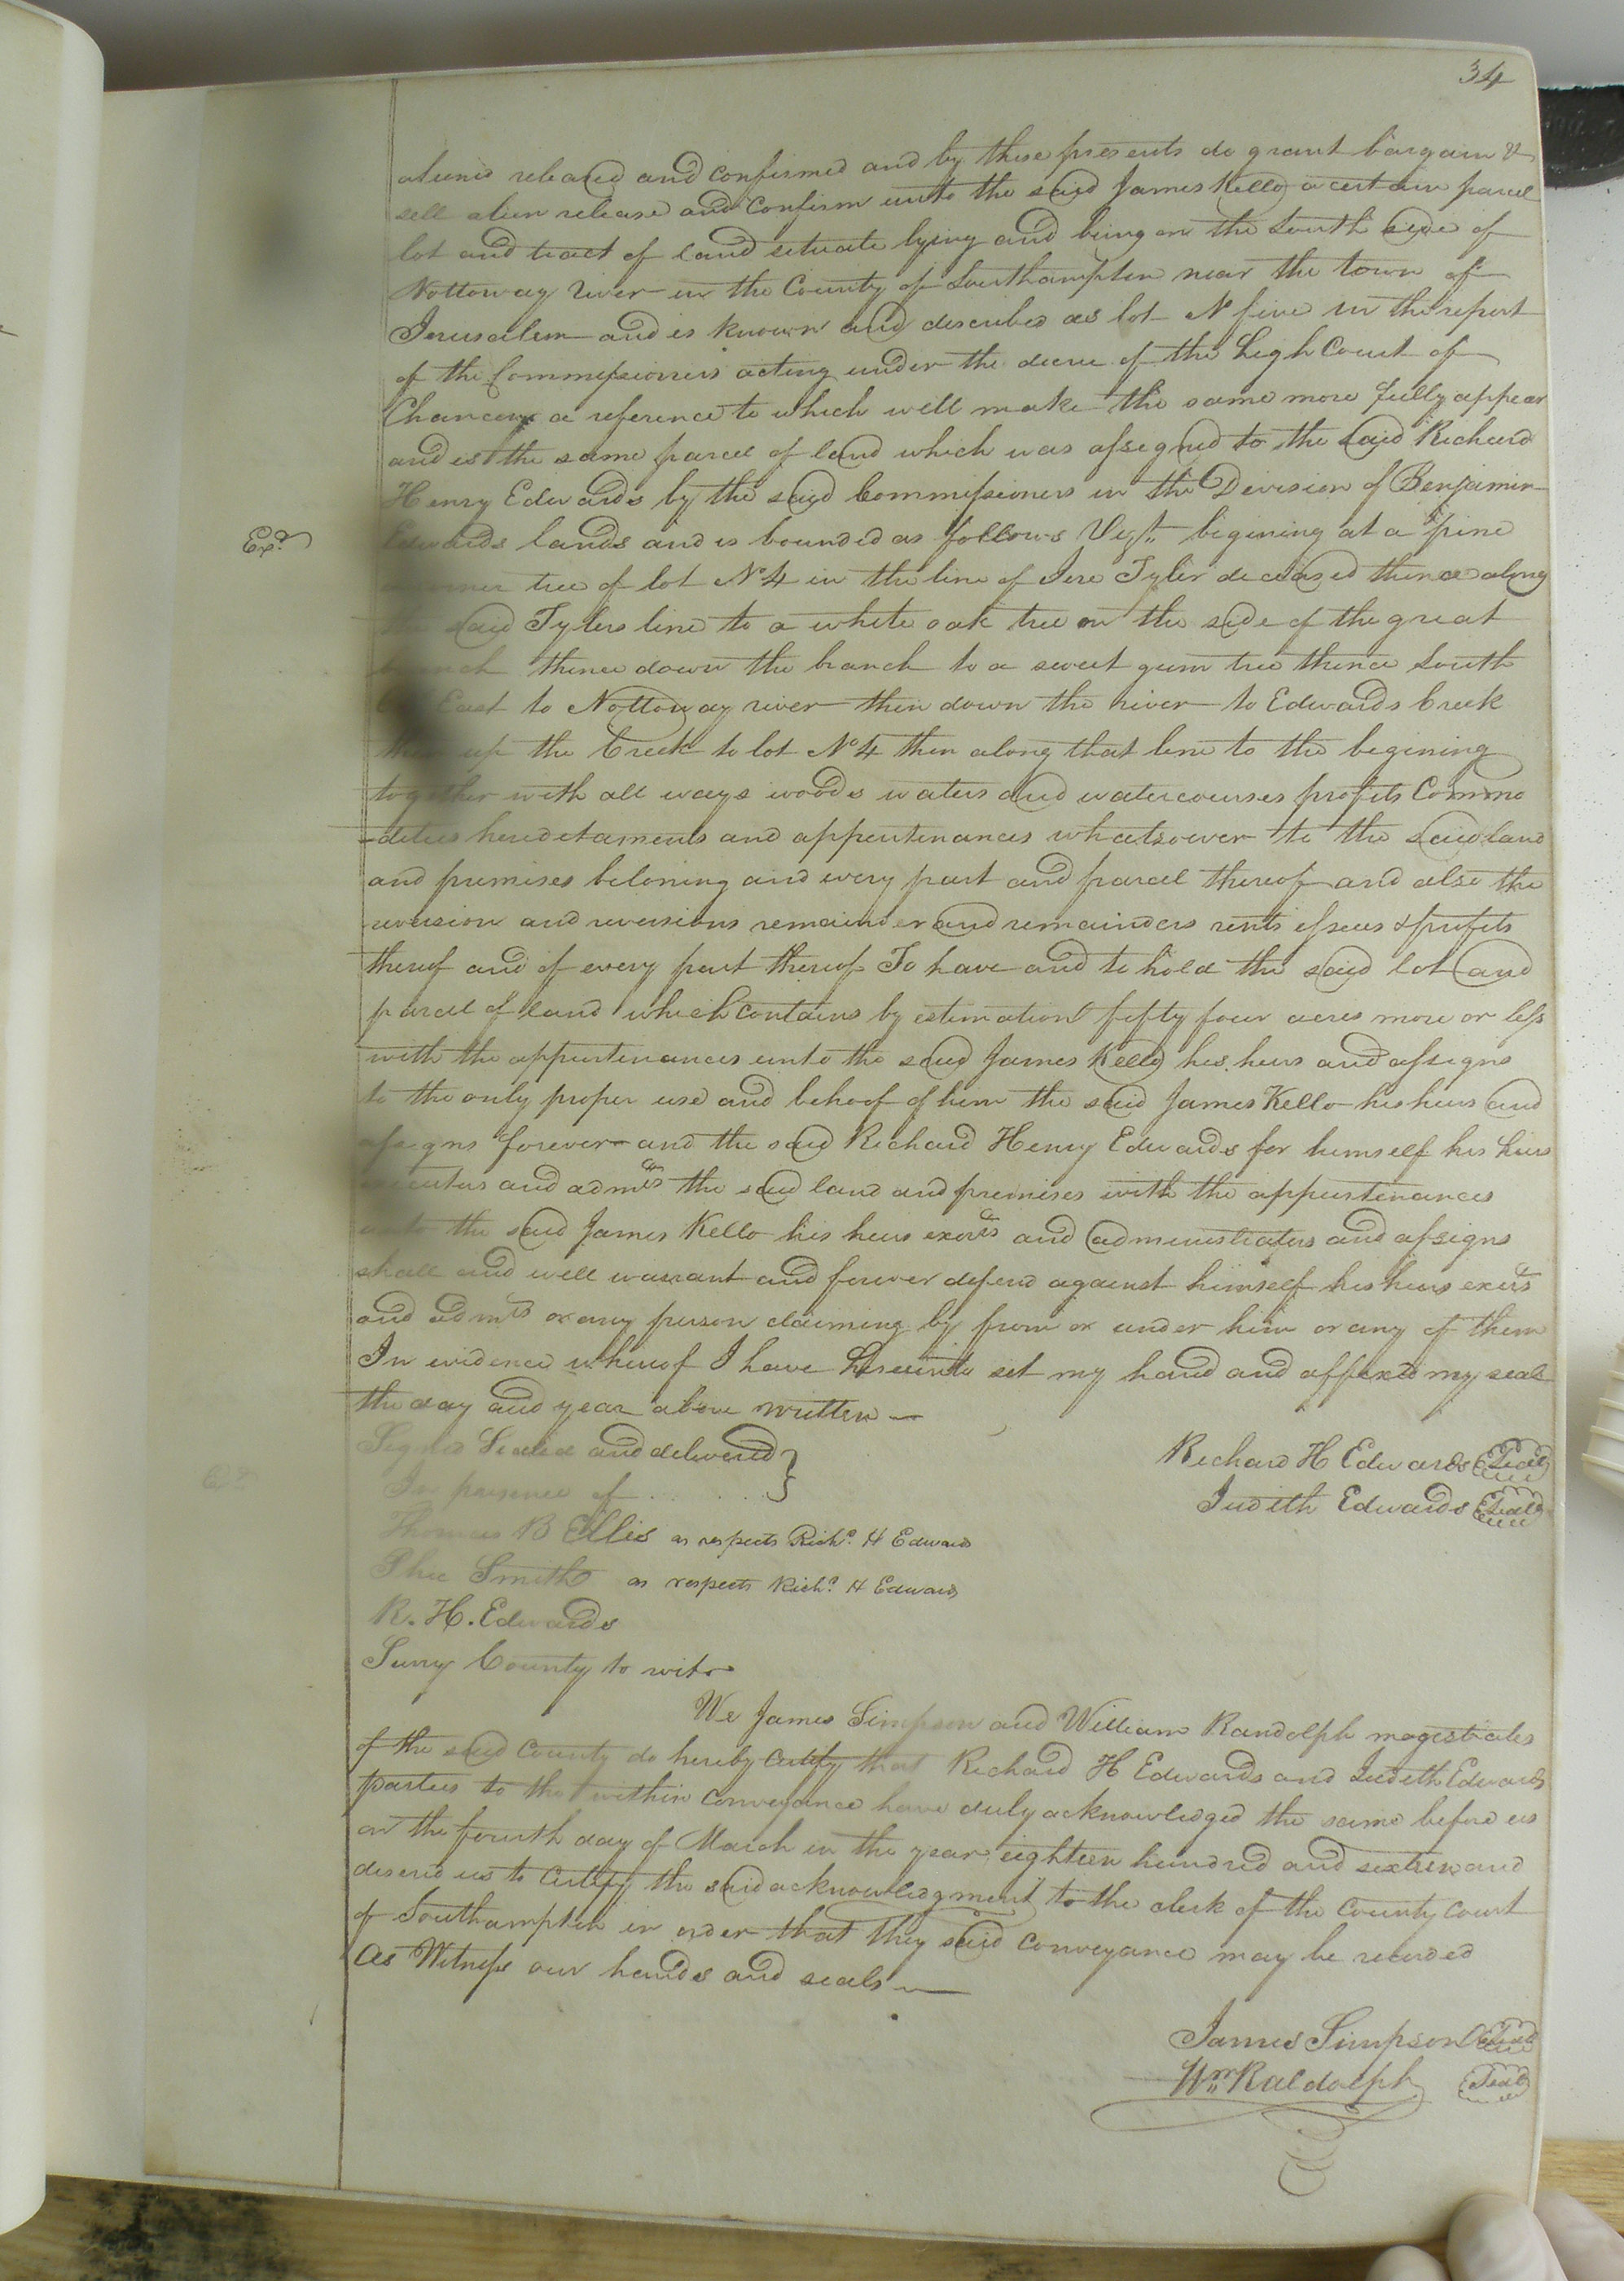 34
aliened released and confirmed and by these presents do grant bargain &
sell alien release and confirm unto the said James Kello a certain parcel
lot and tract of land situate lying and being on the South side of
Nottoway River in the County of Southampton near the town of
Jerusalem and is known and described as lot N five in the report
of the Commissioners acting under the decree of the high Court of
Chancery a reference to which will make the same more fully appear
and is the same parcel of land which was assigned to the said Richard
Henry Edwards by the said Commissioners in the Division of Benjamin
Exd
Edwards lands and is bounded as follows Vizt. begining at a pine
tree of lot No 4 in the line of Jere Tyler deceased thence along
said Tylers line to a white oak tree on the side of the great
branch thence down the branch to a sweet gum tree thence South
East to Nottoway river then down the river to Edwards Creek
then up the Creek to lot No 4 then along that line to the begining
together with all ways woods waters and watercourses profits Commo
-dities hereditaments and appurtenances whatsoever to the said land
and premises beloning and every part and parcel thereof and also the
reversion and reversions remainder and remainders rents issues & profits
thereof and of every part thereof To have and to hold the said lot and
parcel of land which contains by estimation fifty four acres more or less
with the appurtenances unto the said James Kello his heirs and assigns
to the only proper use and behoof of him the said James Kello his heirs and
assigns forever and the said Richard Henry Edwards for himself his heirs
executors and admrs the said land and premises with the appurtenances
unto the said James Kello his heirs exors and administrators and assigns
shall and will warrant and forever defend against himself his heirs exors
and admrs or any person claiming by from or under him or any of them
In evidence whereof I have hereunto set my hand and affixed my seal
the day and year above written
Signed Sealed and delivered }
In presence of . . . . .
Richard H Edwards Seal
Judith Edwards Seal
Thomas B Ellis as respects Richd. H Edwards
Smith as respects Richd. H Edwards
R. H. Edwards
Surry County to wit
We James Simpson and William Randolph magistrates
of the said County do hereby certify that Richard H Edwards and Judith Edwards
parties to the within conveyance have duly acknowledged the same before us
on the fourth day of March in the year eighteen hundred and sixteen and
desired us to certify the said acknowledgment to the clerk of the County Court
of Southampton in order that they said conveyance may be recorded
As Witness our hands and seals
James Simpson Seal
Wm Raldolph Seal